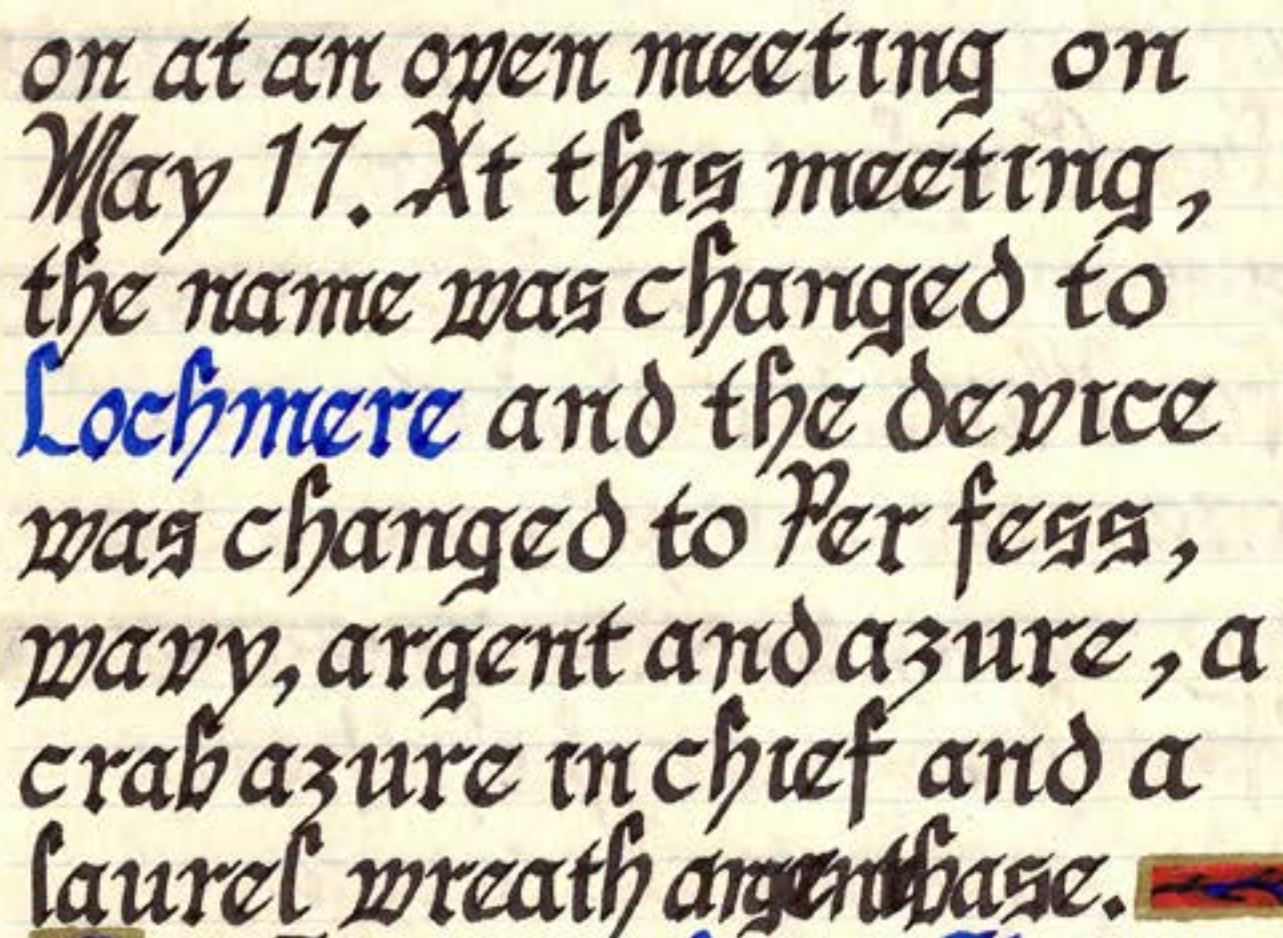 on at an open meeting on
May 17. At this meeting,
the name was changed to
Lochmere and the device
was changed to Per fess,
wavy, argent and azure, a
crab azure in chief and a
laurel wreath base.